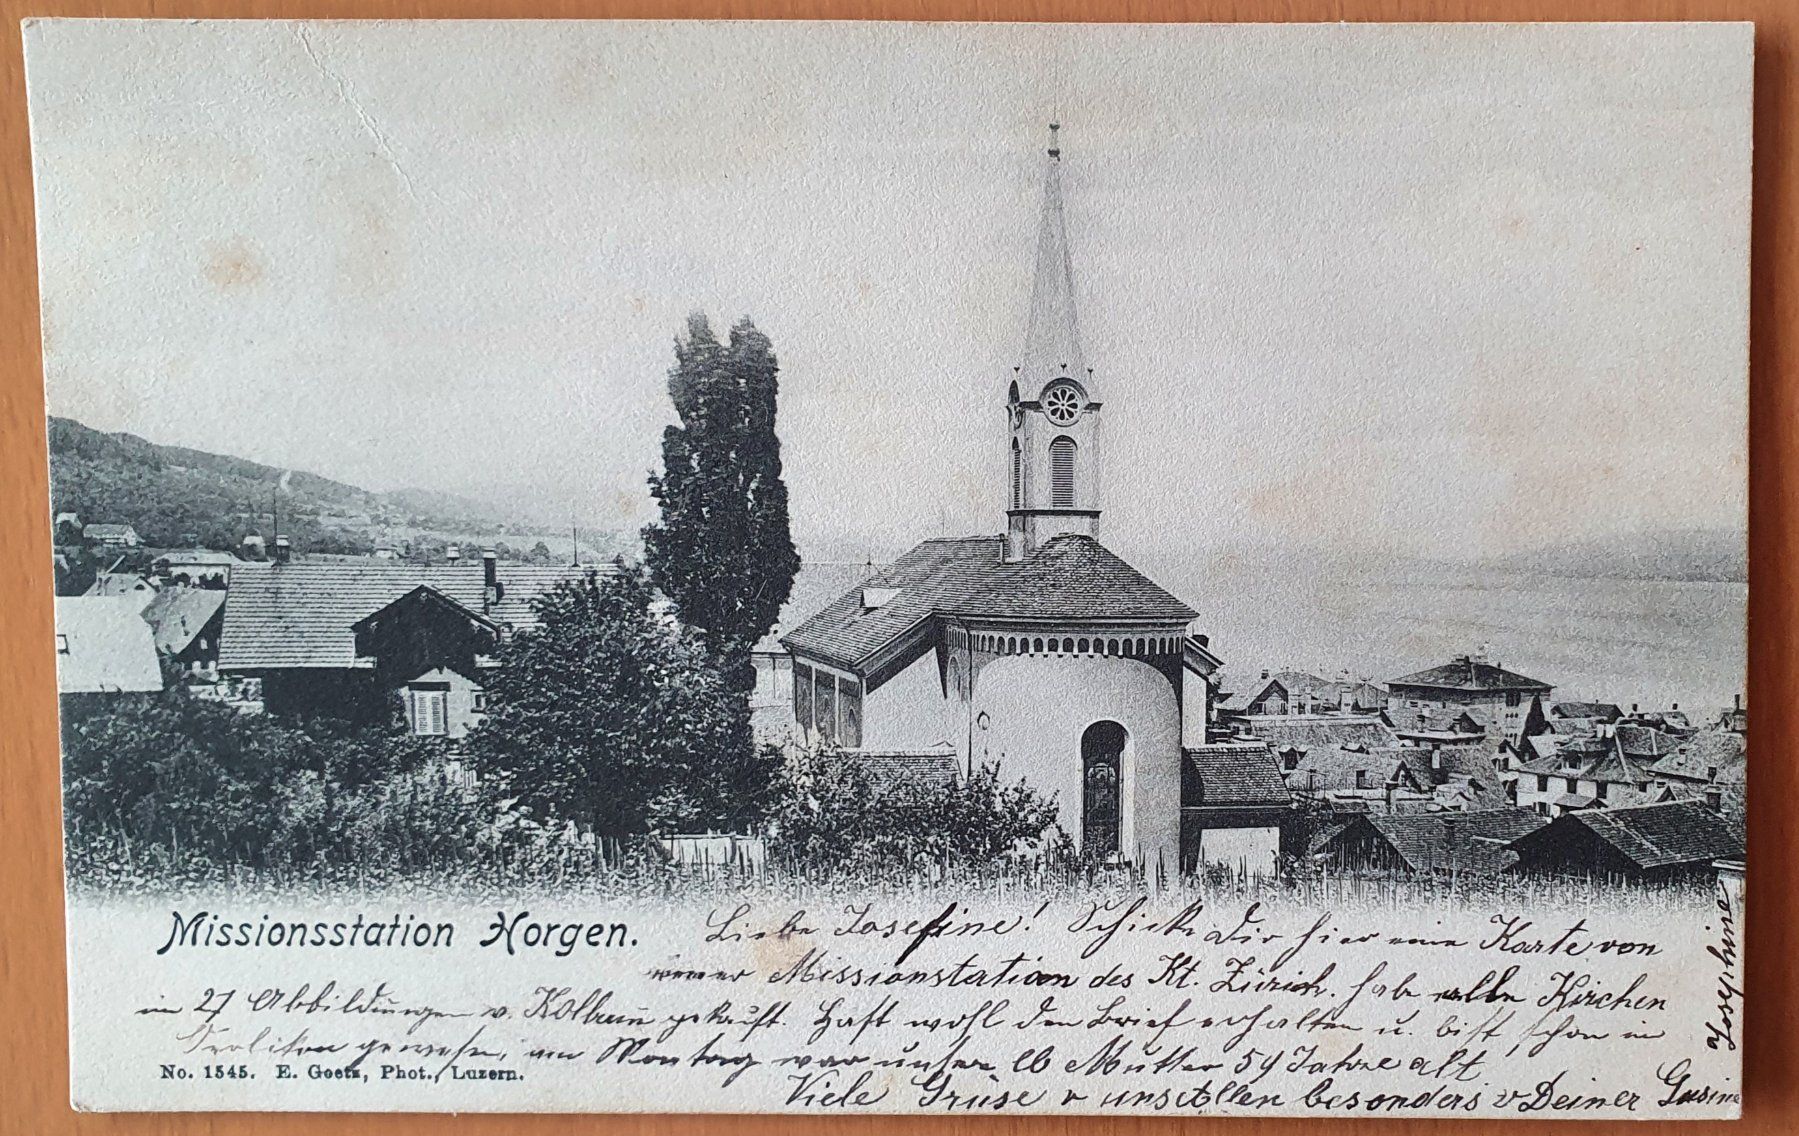 Missionsstation Horgen.
Liebe Josefine! Schicke Dir hier eine Karte von
einer Missionstation des Kt. Zürich. habe alle Kirchen
in 27 Abbildungen v. gekauft. Hast wohl den Brief erhalten u. bist schon in
gewesen, am Montag war unsere lb Mutter 59 Jahre alt
No. 1545. E. Goetz, Phot., Luzern.
Viele Grüse v uns allen besonders v Deiner
Josephine